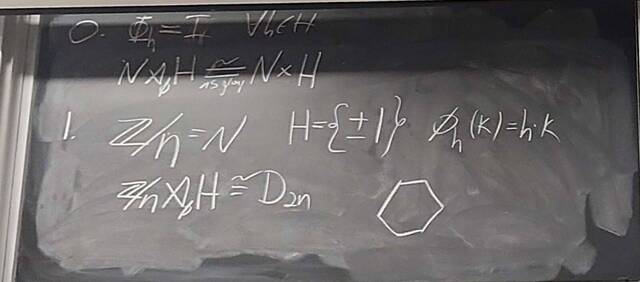 0. Φₕ = I ∀h∈H
N ⋊ᵩ H ≅ N × H
as grp
1. ℤ/n = N H = {±1} ϕₕ(k) = h·k
ℤ/n ⋊ᵩ H ≅ D₂ₙ